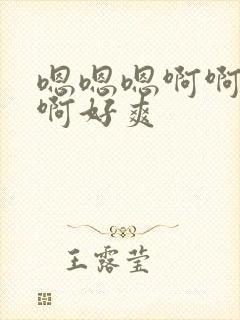 嗯嗯嗯啊啊
啊好爽
王露莹